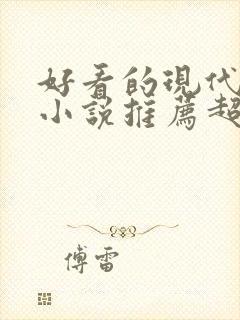 好看的現代
小說推薦超
傅雷